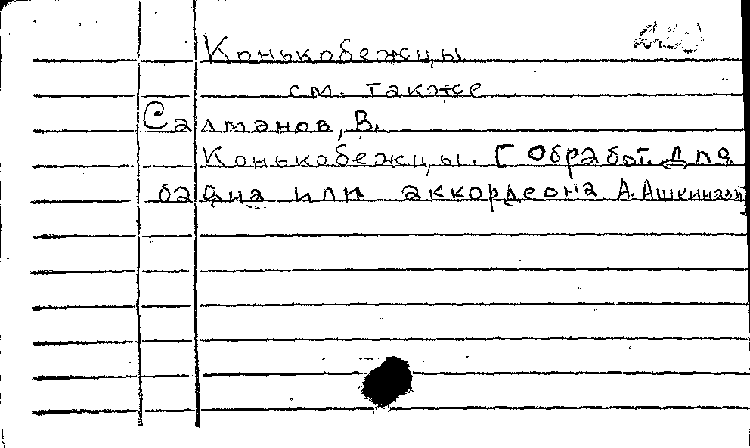 Конькобежцы
см. также
Салтанов, В.
Конькобежцы. [Обработ. для
баяна или аккордеона А. Ашкенази]